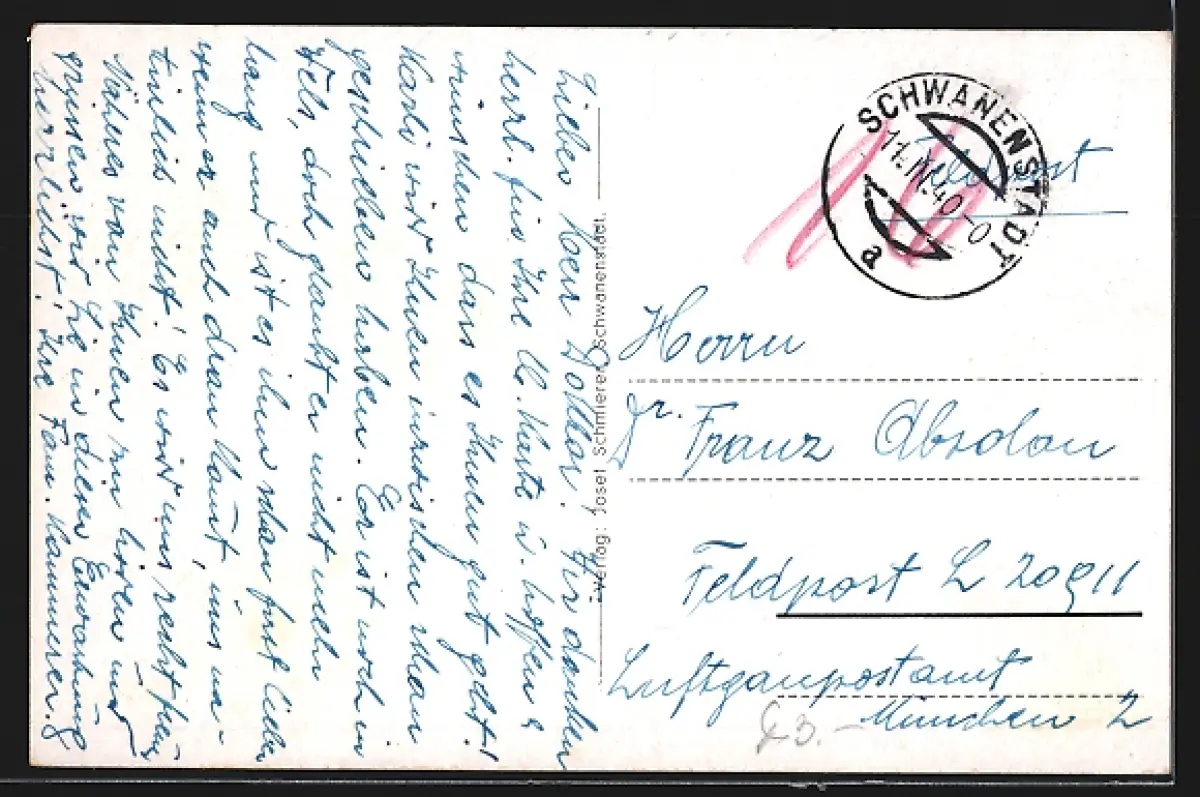 Lieber Herr Doktor! Wir danken
herzl. für Ihre lb. Karte u. hoffen u.
wünschen dass es Ihnen gut geht!
Karli wird Ihnen inzwischen schon
geschrieben haben. Er ist noch in
Wels, doch glaubt er nicht mehr
lang und ist es ihm schon fast lieber
wenn er auch dran kommt, uns na-
türlich nicht! Es wird uns recht freuen
Näheres von Ihnen zu hören und
grüssen wir Sie in dieser Erwartung
herzlichst! Ihre Fam. Kammerer.
Verlag: Josef Schmierer, Schwanenstadt.
SCHWANENSTADT
11. IV. 40
a
Feldpost
Herrn
Dr. Franz Absolon
Feldpost L 20911
Luftgaupostamt
München 2
3.-